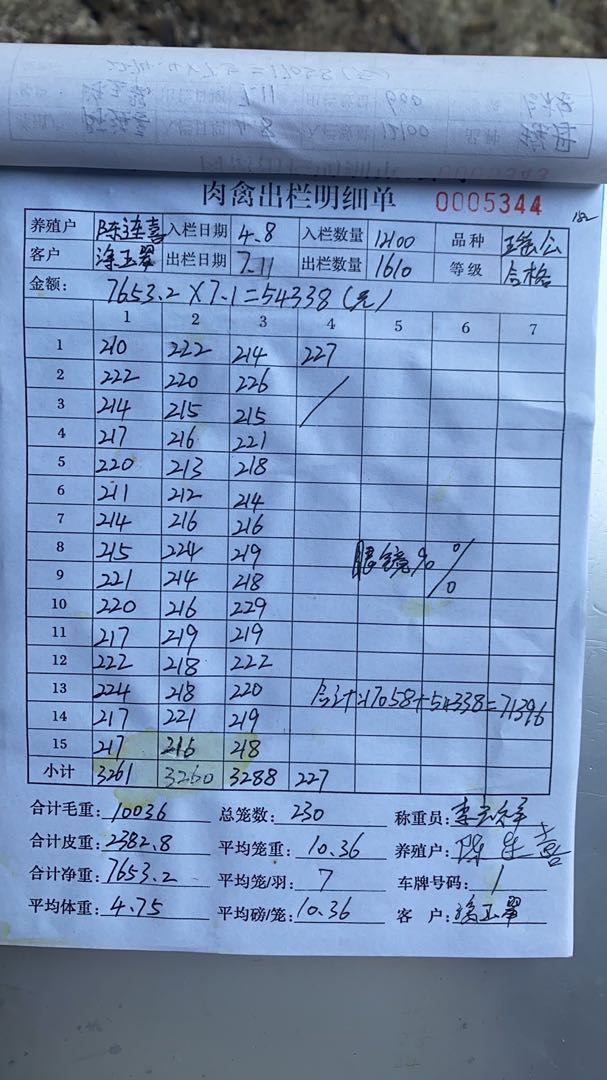 肉禽出栏明细单 0005344
182
养殖户 陈连喜 入栏日期 4.8 入栏数量 12100 品种 瑶公
客户 涂玉翠 出栏日期 7.11 出栏数量 1610 等级 合格
金额: 7653.2×7.1=54338(元)
1 2 3 4 5 6 7
1 210 222 214 227
2 222 220 226
3 214 215 215
4 217 216 221
5 220 213 218
6 211 212 214
7 214 216 216
8 215 224 219 眼镜%%
9 221 214 218
10 220 216 229
11 217 219 219
12 222 218 222
13 224 218 220 合计:17058+54338=71396
14 217 221 219
15 217 216 218
小计 3261 3260 3288 227
合计毛重: 10036 总笼数: 230 称重员:
合计皮重: 2382.8 平均笼重: 10.36 养殖户: 陈连喜
合计净重: 7653.2 平均笼/羽: 7 车牌号码: 1
平均体重: 4.75 平均磅/笼: 10.36 客 户: 涂玉翠